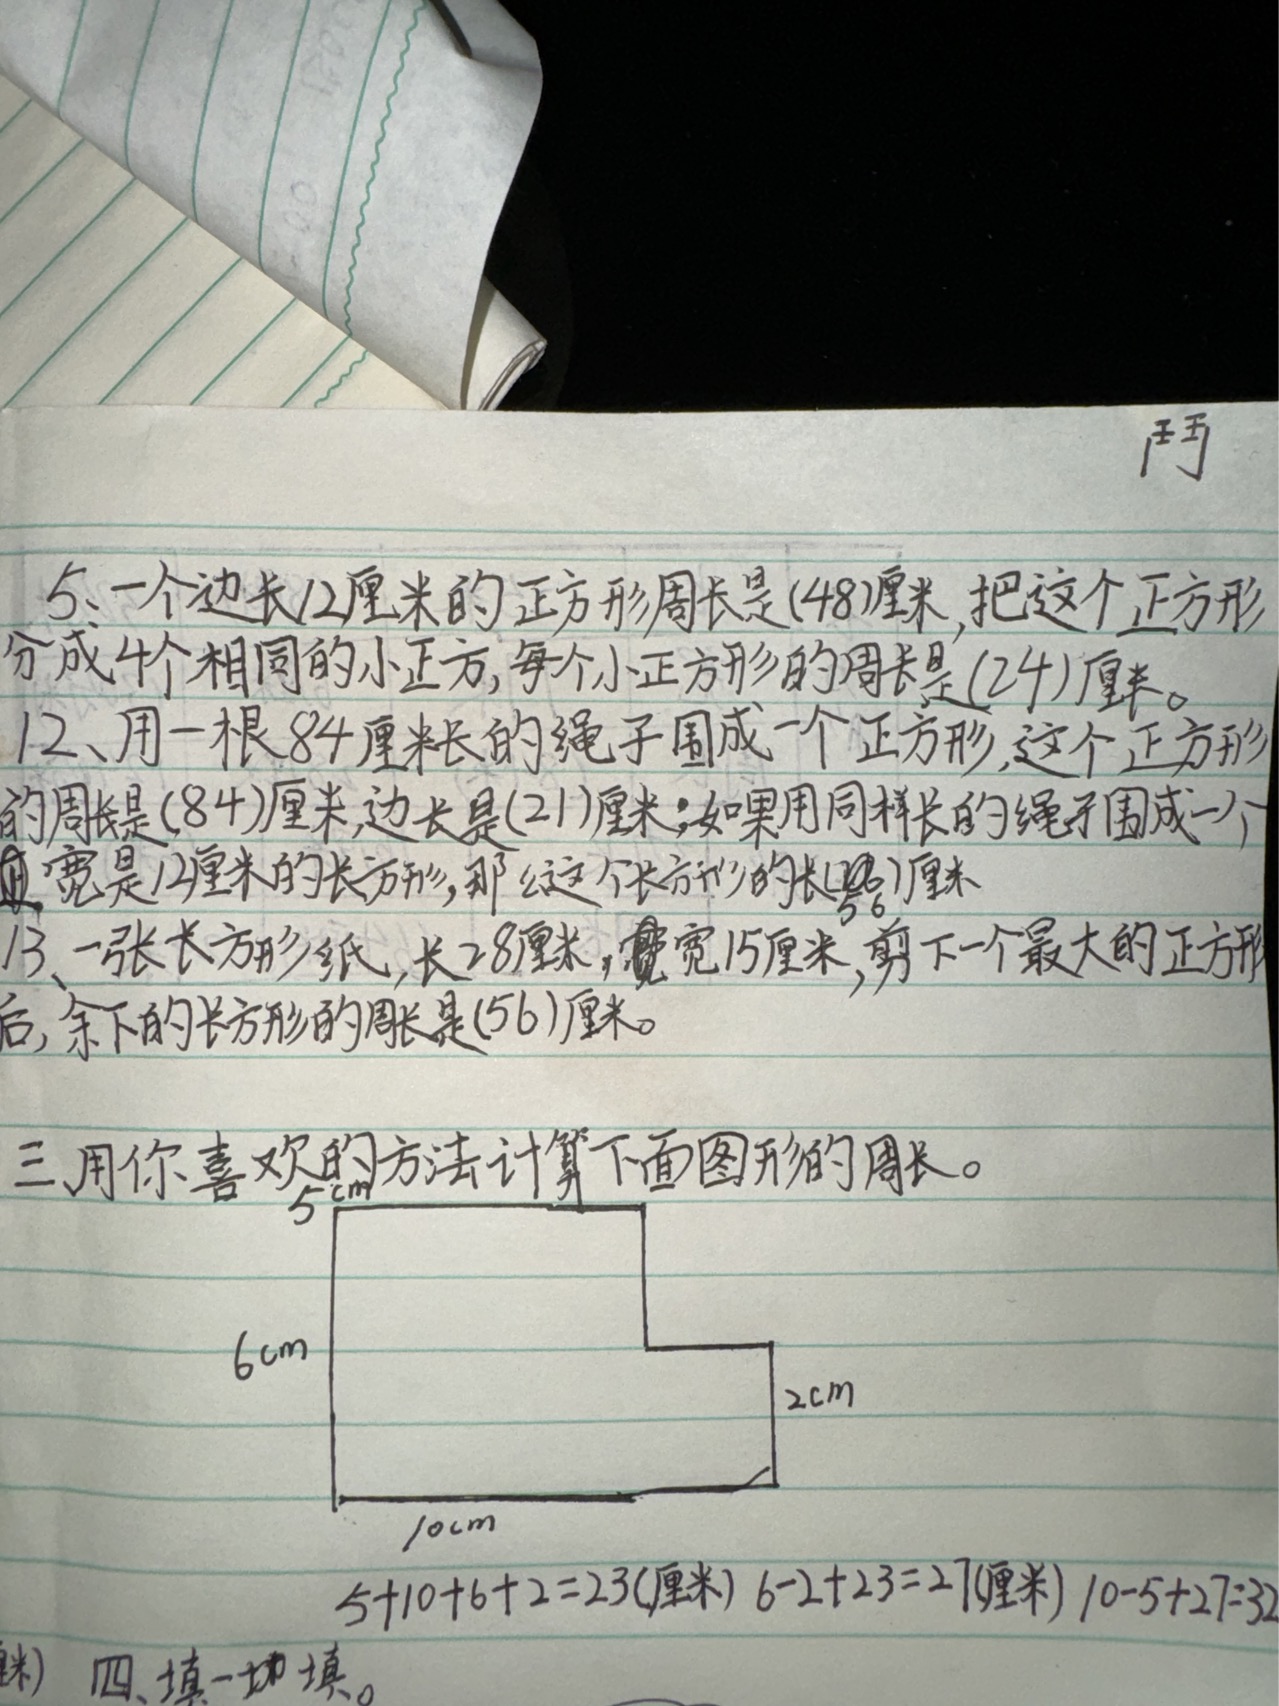 鬥
5、一个边长12厘米的正方形周长是(48)厘米,把这个正方形
分成4个相同的小正方,每个小正方形的周长是(24)厘米。
12、用一根84厘米长的绳子围成一个正方形,这个正方形
的周长是(84)厘米,边长是(21)厘米;如果用同样长的绳子围成一个
宽是12厘米的长方形,那么这个长方形的长()厘米
56
13、一张长方形纸,长28厘米,宽15厘米,剪下一个最大的正方形
后,余下的长方形的周长是(56)厘米。
三、用你喜欢的方法计算下面图形的周长。
5cm
6cm
2cm
10cm
5+10+6+2=23(厘米) 6-2+23=27(厘米) 10-5+27=32
米) 四、填一填。